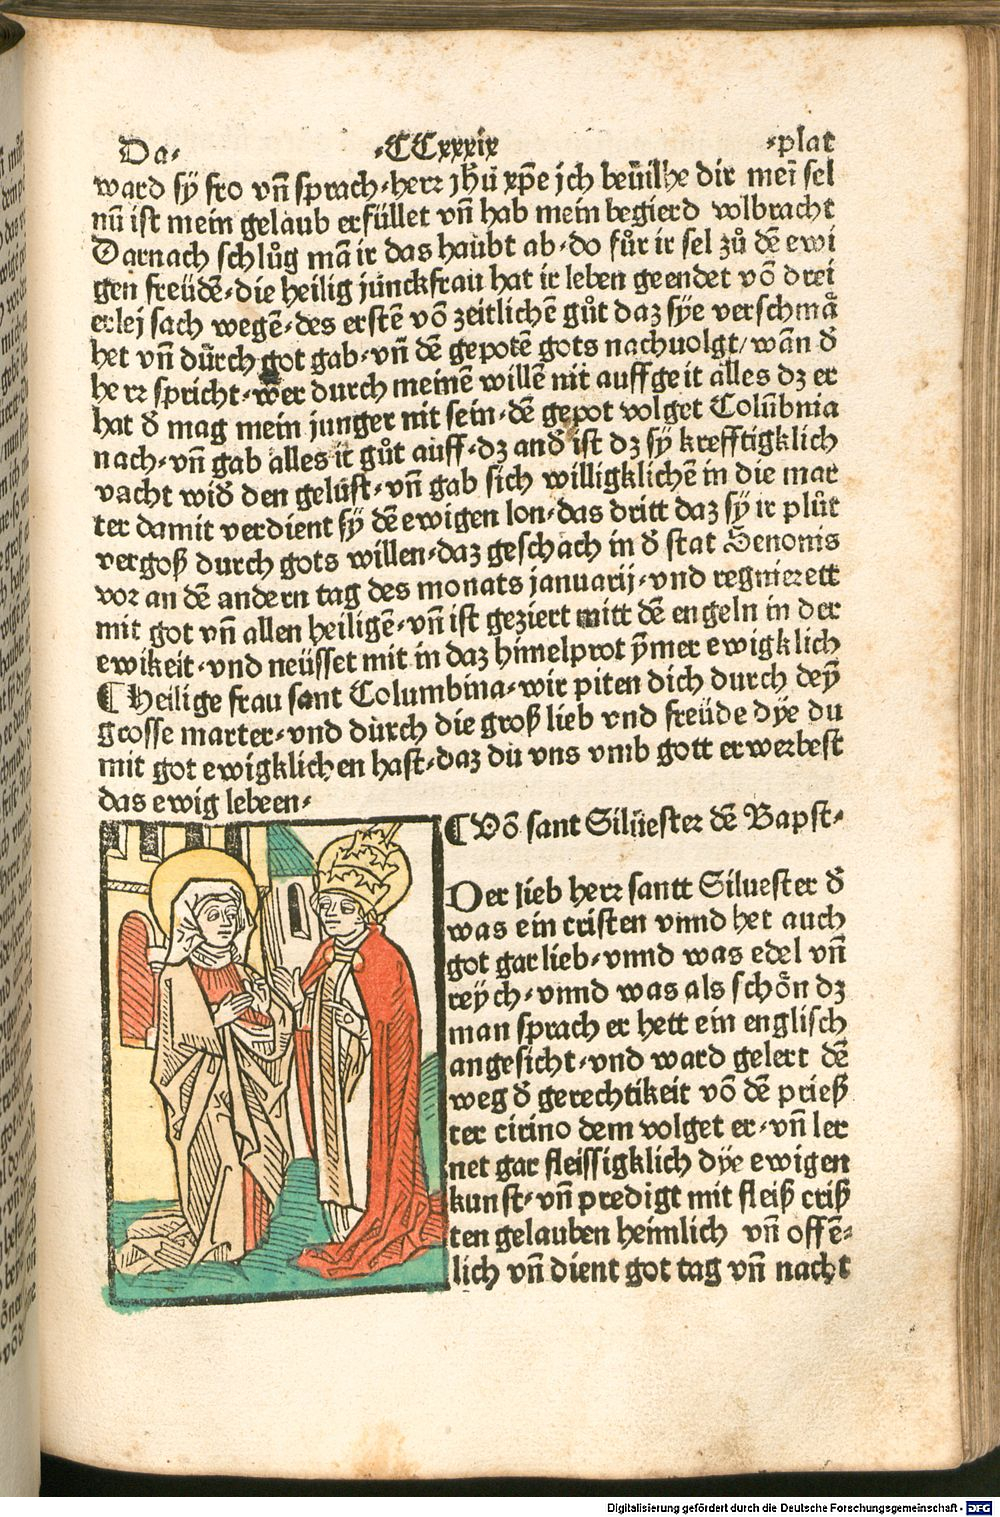 Da⸗ ⸗CCxxxix ⸗plat
ward sÿ fro vñ sprach⸗herr jhũ xp̄e jch beuilhe dir meī sel
nũ ist mein gelaub erfüllet vñ hab mein begierd volbracht
Darnach schlůg mã ir das haubt ab⸗do fůr ir sel zů dẽ ewi
gen freüdẽ⸗die heilig junckfrau hat ir leben geendet võ drei
erlej sach wegẽ⸗des erstẽ võ zeitlichẽ gůt daz sÿe verschmä
het vñ dürch got gab⸗vñ dẽ gepotẽ gots nachuolgt/wãn đ
herr spricht⸗wer durch meinẽ willẽ nit auffgeit alles dz er
hat đ mag mein junger nit sein⸗dẽ gepot volget Colũbnia
nach⸗vñ gab alles ir gůt auff⸗dz anđ ist dz sÿ krefftigklich
vacht wiđ den gelüst⸗vñ gab sich willigklichẽ in die mar
ter damit verdient sÿ dẽ ewigen lon⸗das dritt daz sÿ ir plůt
vergoß durch gots willen⸗daz geschach in đ stat Senonis
vor an dẽ andern tag des monats januarij⸗vnd regnierett
mit got vñ allen heiligẽ⸗vñ ist geziert mitt dẽ engeln in der
ewikeit⸗vnd neüsset mit in daz himelprot ÿmer ewigklich
¶ Heilige frau sant Columbina⸗wir piten dich durch deÿ
grosse marter⸗vnd dürch die groß lieb vnd freüde dÿe du
mit got ewigklichen hast⸗daz du vns vmb gott erwerbest
das ewig lebeen⸗
¶ Võ sant Silüester dẽ Bapst⸗
Der lieb herr santt Siluester đ
was ein cristen vnnd het auch
got gar lieb⸗vnnd was edel vñ
reÿch⸗vnnd was als schön dz
man sprach er hett ein englisch
angesicht⸗vnd ward gelert dẽ
weg đ gerechtikeit võ dẽ prieß
ter cirino dem volget er⸗vñ ler
net gar fleissigklich dÿe ewigen
kunst⸗vñ predigt mit fleiß criß
ten gelauben heimlich vñ offẽ⸗
lich vñ dient got tag vñ nacht
Digitalisierung gefördert durch die Deutsche Forschungsgemeinschaft - DFG